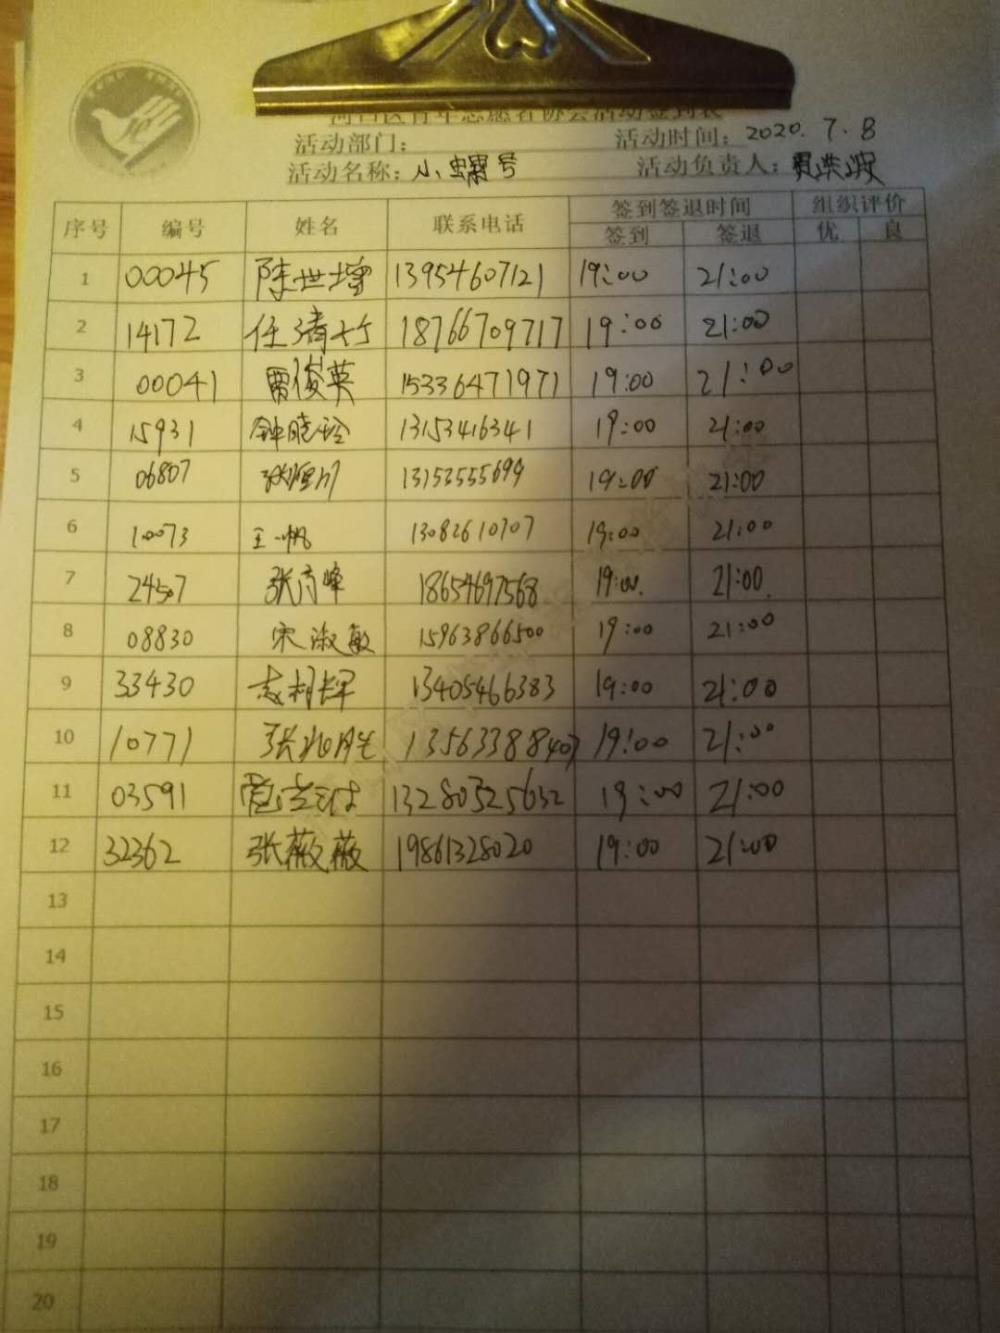 河口区青年志愿者协会活动签到表
活动部门： 活动时间：2020.7.8
活动名称：小螺号 活动负责人：
序号 编号 姓名 联系电话 签到签退时间 组织评价
签到 签退 优 良
1 00045 陈世增 13954607121 19:00 21:00
2 14172 任清竹 18766709717 19:00 21:00
3 00041 雷俊英 15336471971 19:00 21:00
4 15931 钟晓玲 13153416341 19:00 21:00
5 06807 13153555699 19:00 21:00
6 10073 王帆 13082610707 19:00 21:00
7 24507 18654697568 19:00 21:00
8 08830 宋淑敏 15963866500 19:00 21:00
9 33430 13405466383 19:00 21:00
10 10771 张兆胜 13563388407 19:00 21:00
11 03591 13280325632 19:00 21:00
12 32362 张薇薇 19861328020 19:00 21:00
13
14
15
16
17
18
19
20